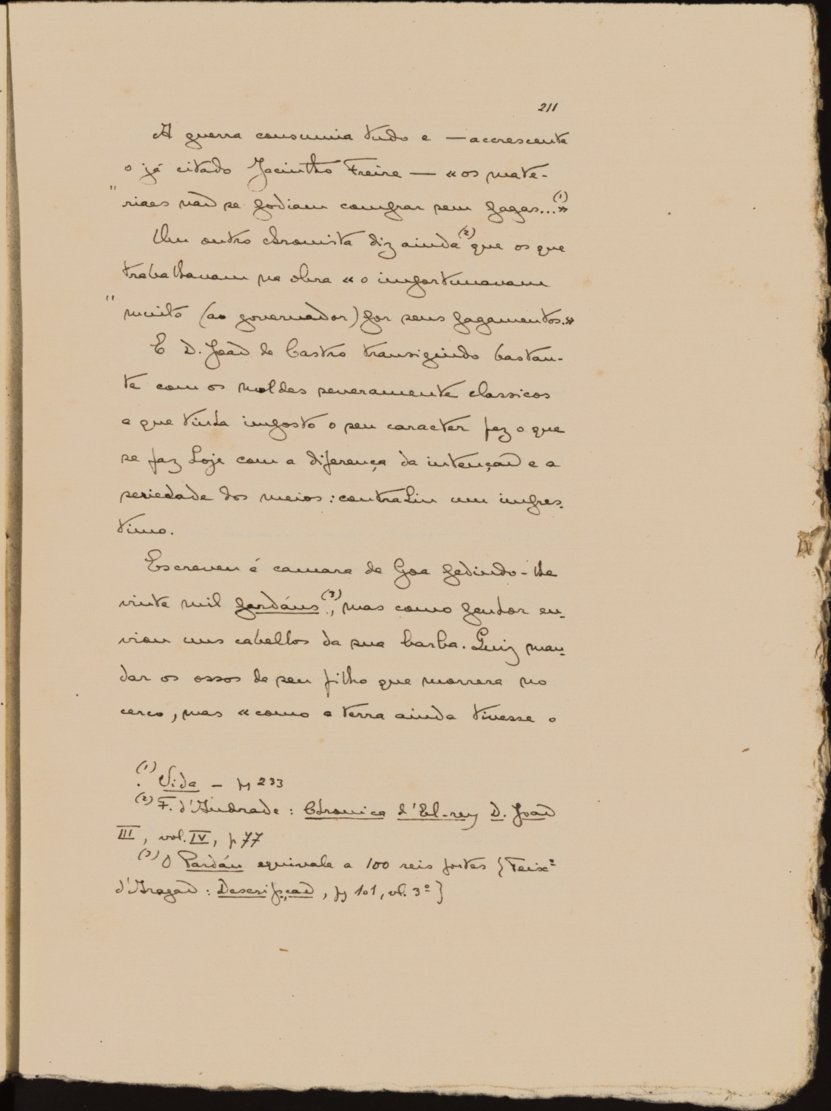 211
A guerra consumia tudo e — accrescenta
o já citado Jacintho Freire — « os mate-
" riaes não se podiam comprar sem pagas...(1)»
Um outro chronista diz ainda (2) que os que
trabalhavam na obra « o importunavam
" muito (ao governador) por seus pagamentos.»
E D. João de Castro transigindo bastan-
te com os moldes severamente classicos
a que tinha imposto o seu caracter fez o que
se faz hoje com a diferença da intenção e a
seriedade dos meios: contrahiu um impres-
timo.
Escreveu á camara de Goa pedindo-lhe
vinte mil pardáus (3), mas como penhor en-
viou uns cabellos da sua barba. Quiz man-
dar os ossos de seu filho que morrera no
cerco, mas « como a terra ainda tivesse o
(1) Vida — p 233
(2) F. d'Andrade: Chronica d'El-rey D. João
III, vol. IV, p 77
(3) O Pardáu equivale a 100 reis fortes {Teixª
d'Aragão: Descripção, p 101, vl. 3º}